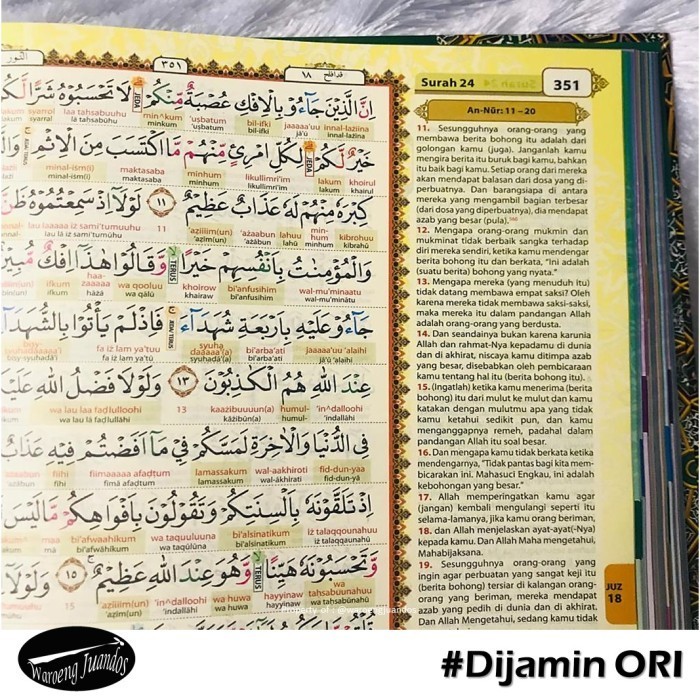 النور
٣٥١
قد افلح ١٨
Surah 24
351
An-Nūr: 11 – 20
اِنَّ الَّذِيْنَ جَاۤءُوْ بِالْاِفْكِ عُصْبَةٌ مِّنْكُمْۗ لَا تَحْسَبُوْهُ شَرًّا
innal-laziina jaaaa'uu bil-ifki 'uṣbatum min^kum laa tahsabuuhu
innal-lażīna jā'ū bil-ifki 'uṣbatum minkum lā taḥsabūhu
خَيْرٌ لَّكُمْۗ لِكُلِّ امْرِئٍ مِّنْهُمْ مَّا اكْتَسَبَ مِنَ الْاِثْمِ
khoirul lakum likullimri'im minhum maktasaba minal-ism(i)
khairul lakum likullimri'im minhum maktasaba minal-iṡm(i)
كِبْرَهٗ مِنْهُمْ لَهٗ عَذَابٌ عَظِيْمٌ ١١ لَوْلَآ اِذْ سَمِعْتُمُوْهُ ظَنَّ
kibrohuu min-hum lahuu 'azaabun 'aziiim(un) 11 lau laaaaa iz sami'tumuuhu
kibrahū lahū 'ażābun 'aẓīm(un) lau lā iż sami'tumūhu
وَالْمُؤْمِنٰتُ بِاَنْفُسِهِمْ خَيْرًاۙ وَّقَالُوْا هٰذَآ اِفْكٌ
wal-mu'minaatu bi'anfusihim khoiraw wa qooluu haa-zaa ifkum
wal-mu'minātu bi'anfusihim khairaw wa qālū hāżā ifkum
جَاۤءُوْ عَلَيْهِ بِاَرْبَعَةِ شُهَدَاۤءَۚ فَاِذْ لَمْ يَأْتُوْا بِالشُّهَدَاۤءِ
jaaaaa'uu 'alaihi bi'arba'ati syuhadaaaa(a) fa iz lam ya'tuu
jā'ū 'alaihi bi'arba'ati syuhadā'(a) fa iż lam ya'tū
عِنْدَ اللّٰهِ هُمُ الْكٰذِبُوْنَ ١٣ وَلَوْلَا فَضْلُ اللّٰهِ
'in^dalloohi humul- kaazibuuun(a) 13 wa lau laa fadlulloohi
'indallāhi humul- kāżibūn(a) wa lau lā faḍlullāhi
فِى الدُّنْيَا وَالْاٰخِرَةِ لَمَسَّكُمْ فِيْ مَآ اَفَضْتُمْ فِيْهِ عَذَابٌ
fid-dun-yaa wal-aakhiroti lamassakum fiimaaaaa afadtum fiihi
fid-dun-yā wal-ākhirati lamassakum fīmā afaḍtum fīhi
اِذْ تَلَقَّوْنَهٗ بِاَلْسِنَتِكُمْ وَتَقُوْلُوْنَ بِاَفْوَاهِكُمْ مَّا لَيْسَ
iz talaqqounahuu bi'alsinatikum wa taquuluuna bi'afwaahikum maa
iż talaqqaunahū bi'alsinatikum wa taqūlūna bi'afwāhikum mā
وَّتَحْسَبُوْنَهٗ هَيِّنًاۙ وَّهُوَ عِنْدَ اللّٰهِ عَظِيْمٌ ١٥ وَلَوْلَآ
wa tahsabuunahuu hayyinaw wa huwa 'in^dalloohi 'aziiim(un) 15
wa taḥsabūnahū hayyinaw wa huwa 'indallāhi 'aẓīm(un)
11. Sesungguhnya orang-orang yang
membawa berita bohong itu adalah dari
golongan kamu (juga). Janganlah kamu
mengira berita itu buruk bagi kamu, bahkan
itu baik bagi kamu. Setiap orang dari mereka
akan mendapat balasan dari dosa yang di-
perbuatnya. Dan barangsiapa di antara
mereka yang mengambil bagian terbesar
(dari dosa yang diperbuatnya), dia mendapat
azab yang besar (pula).
12. Mengapa orang-orang mukmin dan
mukminat tidak berbaik sangka terhadap
diri mereka sendiri, ketika kamu mendengar
berita bohong itu dan berkata, "Ini adalah
(suatu berita) bohong yang nyata."
13. Mengapa mereka (yang menuduh itu)
tidak datang membawa empat saksi? Oleh
karena mereka tidak membawa saksi-saksi,
maka mereka itu dalam pandangan Allah
adalah orang-orang yang berdusta.
14. Dan seandainya bukan karena karunia
Allah dan rahmat-Nya kepadamu di dunia
dan di akhirat, niscaya kamu ditimpa azab
yang besar, disebabkan oleh pembicaraan
kamu tentang hal itu (berita bohong itu).
15. (Ingatlah) ketika kamu menerima (berita
bohong) itu dari mulut ke mulut dan kamu
katakan dengan mulutmu apa yang tidak
kamu ketahui sedikit pun, dan kamu
menganggapnya remeh, padahal dalam
pandangan Allah itu soal besar.
16. Dan mengapa kamu tidak berkata ketika
mendengarnya, "Tidak pantas bagi kita mem-
bicarakan ini. Mahasuci Engkau, ini adalah
kebohongan yang besar."
17. Allah memperingatkan kamu agar
(jangan) kembali mengulangi seperti itu
selama-lamanya, jika kamu orang beriman,
18. dan Allah menjelaskan ayat-ayat(-Nya)
kepada kamu. Dan Allah Maha Mengetahui,
Mahabijaksana.
19. Sesungguhnya orang-orang yang
ingin agar perbuatan yang sangat keji itu
(berita bohong) tersiar di kalangan orang-
orang yang beriman, mereka mendapat
azab yang pedih di dunia dan di akhirat.
Dan Allah Mengetahui, sedang kamu tidak
JUZ
18
Property of : @waroengjuandos
Waroeng Juandos
#Dijamin ORI